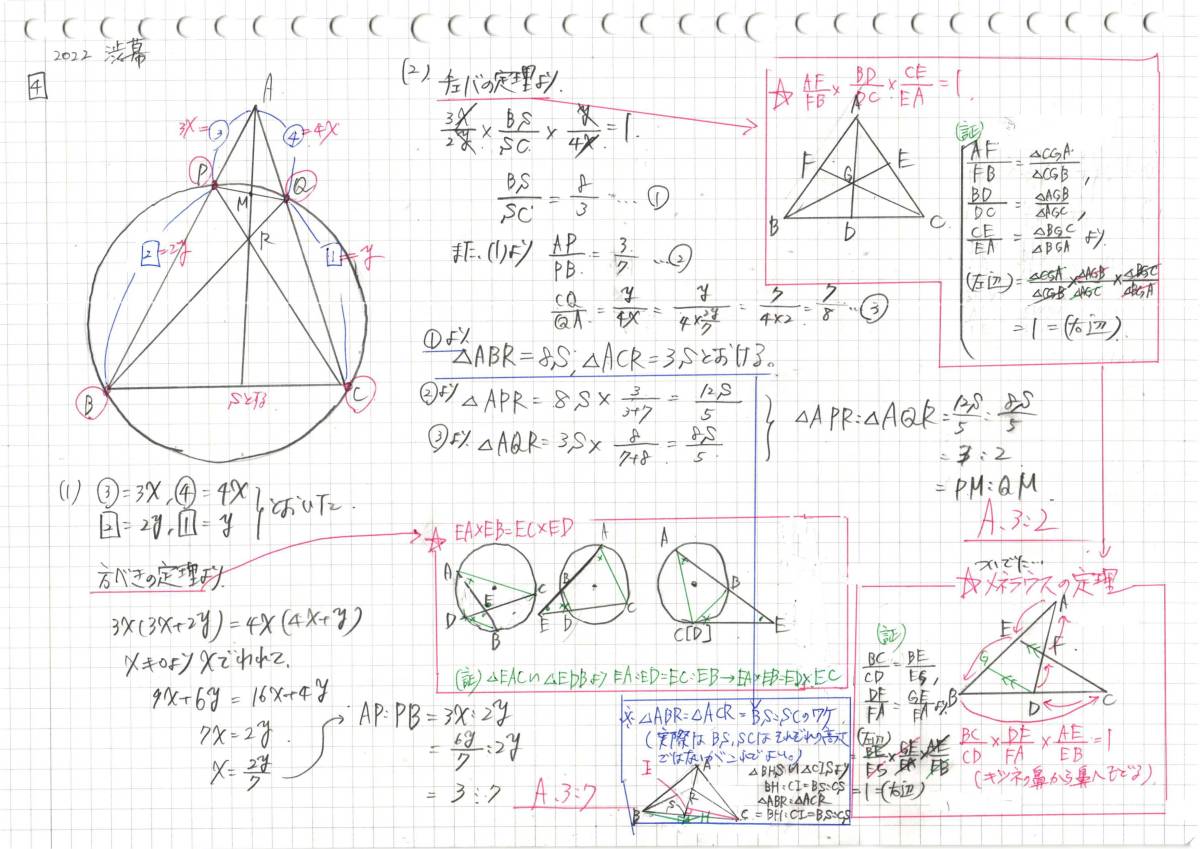 2022 渋幕
4
A
3x=③
④=4x
P
Q
M
R
2=2y
1=y
B
Sとする
C
(1) ③=3x, ④=4x
2=2y, 1=y
とおいた
方べきの定理より
3x(3x+2y)=4x(4x+y)
x≠0よりxでわれて
9x+6y=16x+4y
7x=2y
x=2y/7
AP:PB=3x:2y
=6y/7:2y
=3:7
A.3:7
(2) チェバの定理より
3x/2y×BS/SC×y/4x=1.
BS/SC=8/3…①
また、(1)より AP/PB=3/7…②
CQ/QA=y/4x=y/(4×2y/7)=7/(4×2)=7/8…③
①より
△ABR=8S, △ACR=3Sとおける。
②より △APR=8S×3/(3+7)=12S/5
③より △AQR=3S×8/(7+8)=8S/5
△APR:△AQR=12S/5:8S/5
=3:2
=PM:QM
A.3:2
☆ AF/FB×BD/DC×CE/EA=1
A
F
E
G
B
D
C
(証)
AF/FB=△CGA/△CGB,
BD/DC=△AGB/△AGC,
CE/EA=△BGC/△BGA より
(左辺)=△CGA/△CGB×△AGB/△AGC×△BGC/△BGA
=1=(右辺)
☆ EA×EB=EC×ED
A
E
C
D
B
A
B
E
D
C
A
B
C[D]
E
(証) △EAC∽△EDBより EA:ED=EC:EB→EA×EB=ED×EC
※ △ABR:△ACR=BS:SCのワケ
(実際はBS,SCはそれぞれの高さ
ではないがこれでよい。)
I
A
R
S
B
H
C
△BHS∽△CISより
BH:CI=BS:CS
△ABR:△ACR
=BH:CI=BS:CS
ついでに…
☆メネラウスの定理
(証)
BC/CD=BE/EG,
DE/FA=GE/EAより
(左辺)
BE/EG×GE/EA×AE/EB
=1=(右辺)
A
E
F
G
B
D
C
BC/CD×DE/FA×AE/EB=1
(キツネの鼻から鼻へでる)